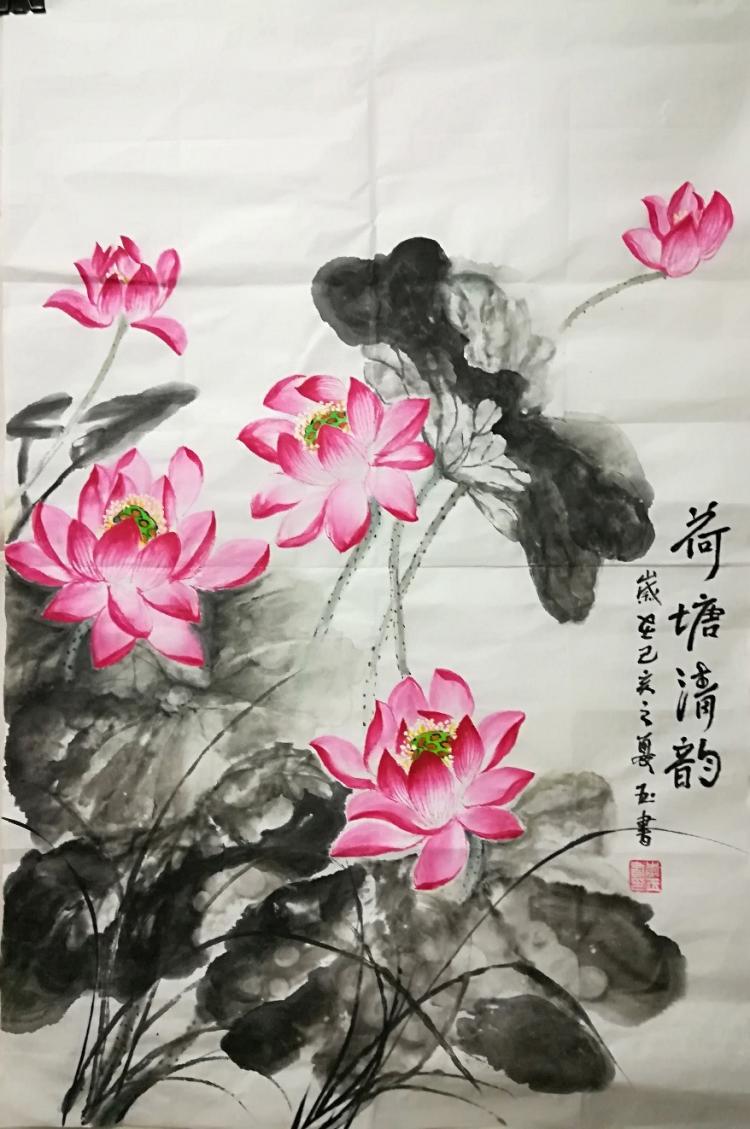 荷塘清韵
歲在己亥之夏玉書